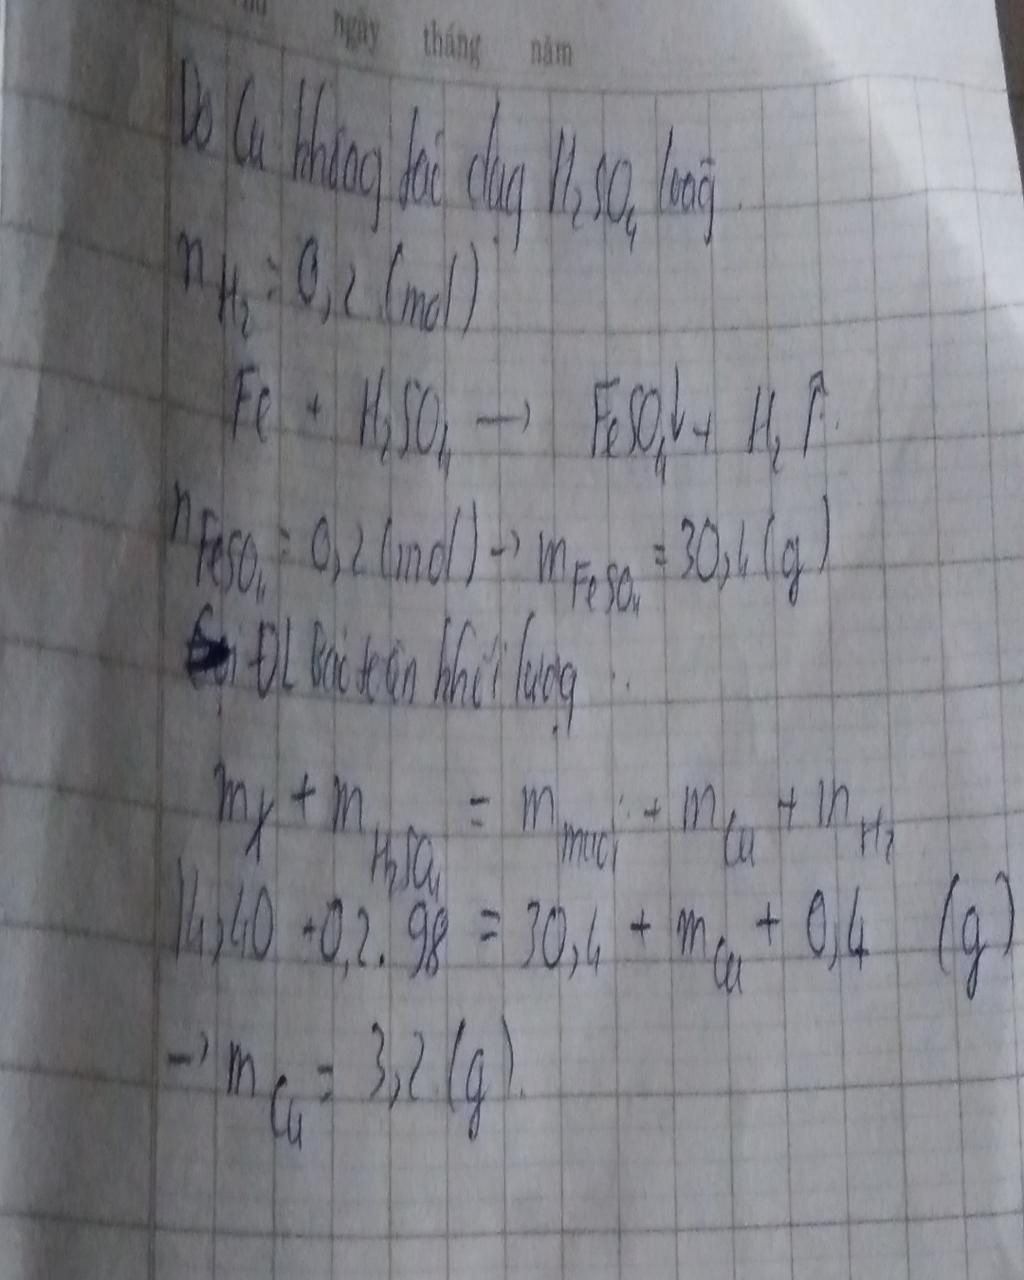 ngày tháng năm
Do Cu không tác dụng H₂SO₄ loãng.
n_H₂ = 0,2 (mol)
Fe + H₂SO₄ → FeSO₄↓ + H₂ ↑.
n_FeSO₄ = 0,2 (mol) → m_FeSO₄ = 30,4 (g)
ĐL Bảo toàn khối lượng :
m_X + m_H₂SO₄ = m_muối + m_Cu + m_H₂
14,40 + 0,2. 98 = 30,4 + m_Cu + 0,4 (g)
→ m_Cu = 3,2 (g).